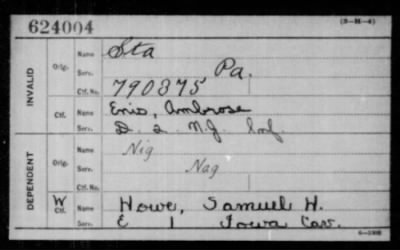 624004
(3-M-4)
INVALID
Orig.
Name Sta
Serv. Pa.
Ctf. No. 790375
Ctf.
Name Enis, Ambrose
Serv. D. 2. N.J. Inf.
DEPENDENT
Orig.
Name Nig
Serv. Nag
Ctf. No.
W
Ctf.
Name Howe, Samuel H.
Serv. E 1 Iowa Cav.